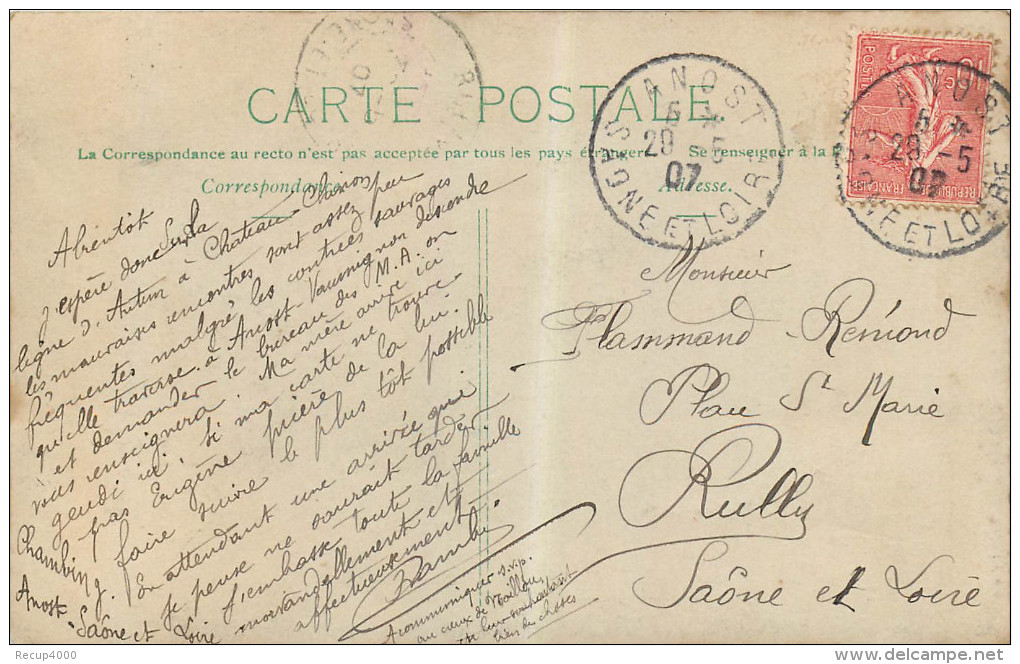 CARTE POSTALE
La Correspondance au recto n'est pas acceptée par tous les pays étrangers Se renseigner à la
Correspondance
Adresse.
ANOST
5 *
29 -5
07
SAONE ET LOIRE
ANOST
5 *
29 -5
07
SAONE ET LOIRE
POSTES
REPUBLIQUE FRANÇAISE
A bientôt
j'espère donc Sur la
ligne d'Autun à Chateau Chinon
les mauvaises rencontres sont assez peu
fréquentes malgré les contrées sauvages
qu'elle traverse. à Anost-Vaumignon descendre
et demander le bureau des M.A. on
vous renseignera. Ma mère arrive ici
jeudi ici, si ma carte ne trouve
pas Eugène prière de la lui
faire suivre le plus tôt possible
En attendant une arrivée qui
je pense ne saurait tarder
j'embrasse toute la famille
morvandellement et
affectueusement.
Anost
Saône et Loire
A communiquer s.v.p.
au ceux de
en leur souhaitant
bien de choses
Monsieur
Flammand-Rémond
Place St Marie
Rully
Saône et Loire
Recup4000
www.delcampe.net